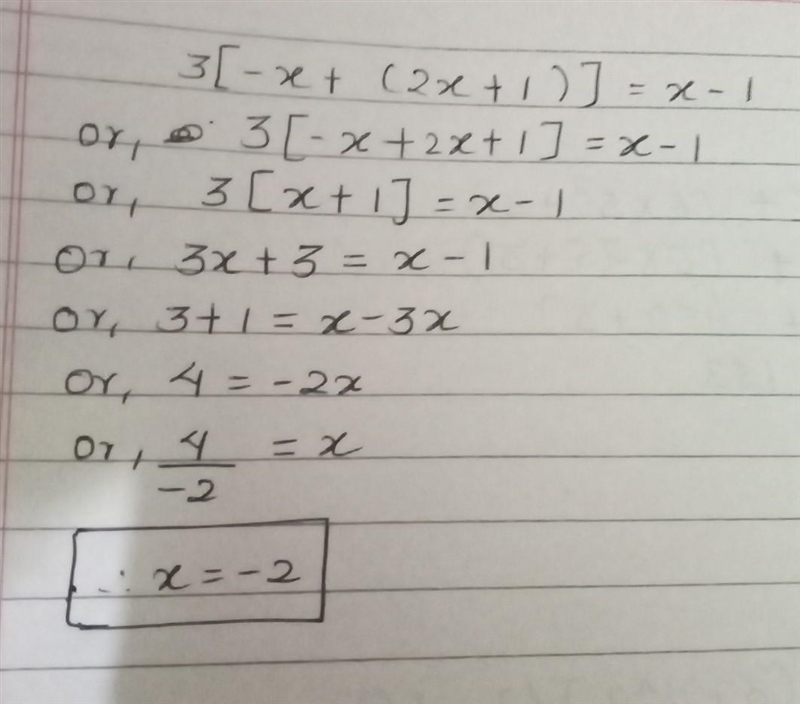 3[-x + (2x + 1)] = x - 1
or, 3[-x + 2x + 1] = x - 1
or, 3[x + 1] = x - 1
or, 3x + 3 = x - 1
or, 3 + 1 = x - 3x
or, 4 = -2x
or, 4/-2 = x
∴ x = -2